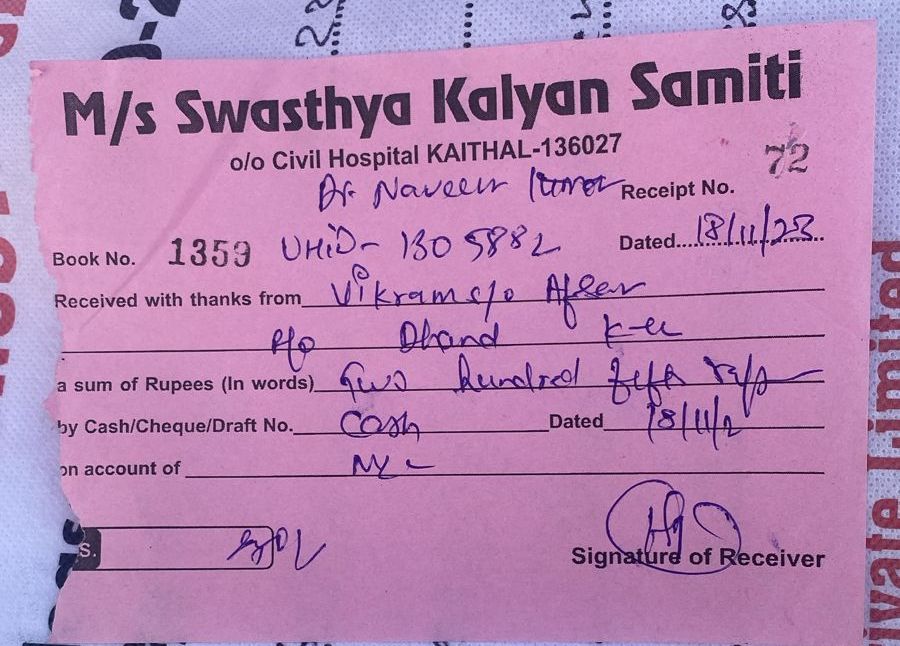 M/s Swasthya Kalyan Samiti
o/o Civil Hospital KAITHAL-136027
Dr. Naveen
Receipt No. 72
Book No. 1359 UHID- 1305882
Dated 18/11/23
Received with thanks from Vikram s/o
Dhand
a sum of Rupees (In words) Two hundred
by Cash/Cheque/Draft No. Cash Dated 18/11/2
on account of
S.
Signature of Receiver